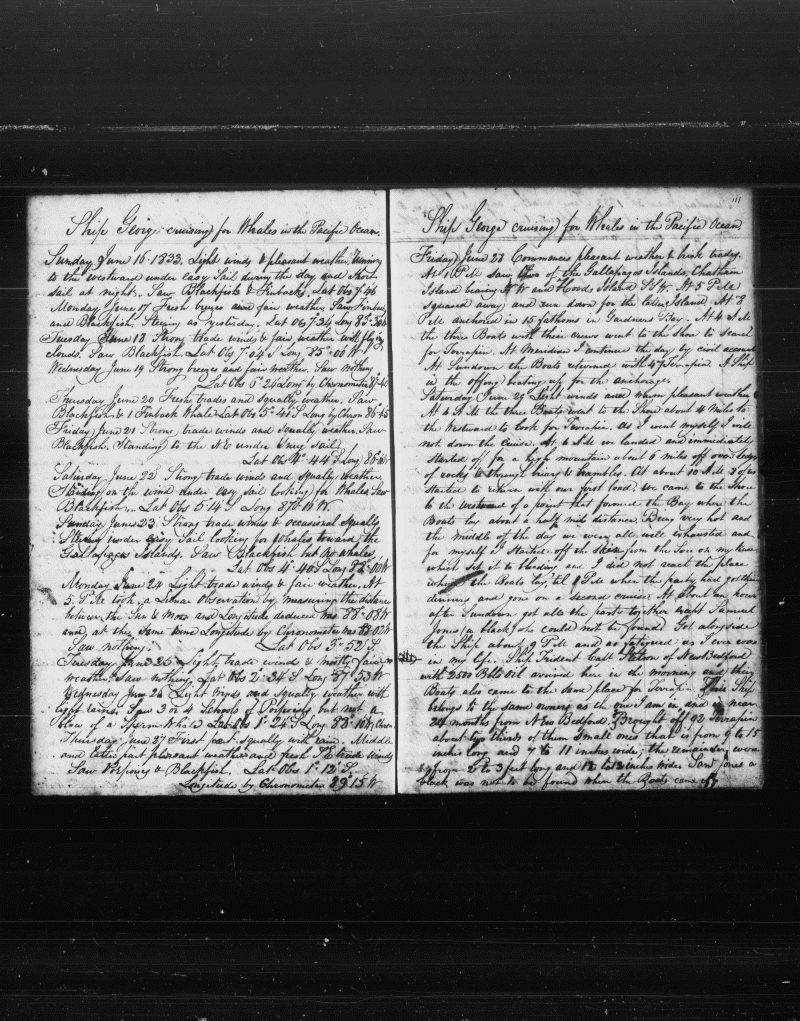 Ship George cruising for Whales in the Pacific Ocean.
Sunday June 16 1833. Light winds & pleasant weather.
to the westward under easy Sail during the day and Short
sail at night. Saw Blackfish & Finbacks. Lat Obs 7..46
Monday June 17 Fresh breezes and fair weather Saw Finbacks
and Blackfish. Steering as yesterday. Lat Obs 7..24 Long
Tuesday June 18 Strong trade winds & fair weather with flying
clouds. Saw Blackfish Lat Obs 7..04 S Long 85..00 W
Wednesday June 19 Strong breezes and fair weather. Saw nothing
Lat Obs 24 Long by Chronometer
Thursday June 20 Fresh trades and squally weather. Saw
Blackfish & 1 Finback Whale Lat Obs 5..46 S Long by Chron 86..45
Friday June 21 Strong trade winds and squally weather. Saw
Blackfish. Standing to the NE under easy sail
Lat Obs 4..44 S Long
Saturday June 22 Strong trade winds and squally weather
Standing on the wind under easy sail looking for Whales Saw
Blackfish. Lat Obs 5..14 S Long W.
Sunday June 23. Strong trade winds & occasional squalls
Steering under easy Sail looking for whales toward the
Gallapagos Islands. Saw Blackfish but no whales
Lat Obs 4..40 S Long 88..00 W
Monday June 24 Light trade winds & fair weather. At
5 PM took a Lunar Observation by measuring the distance
between the Sun & Moon and Longitude deduced was 88..08 W
and at the same time Longitude by Chronometer was 88..02 W
Saw nothing. Lat Obs 3..52 S.
Tuesday June 25 Light trade winds & mostly fair
weather. Saw nothing. Lat Obs 2..34 S Long 87..53 W
Wednesday June 26 Light winds and squally weather with
light rains. Saw 3 or 4 Schools of Porpoises but not a
blow of a Sperm Whale Lat Obs 1..24 S Long 88..16 W Chron
Thursday June 27 First part squally with rain. Middle
and latter part pleasant weather and fresh SE trade winds
Saw Porpoises & Blackfish. Lat Obs 1..12 S.
Longitude by Chronometer 89..15 W
111
Ship George cruising for Whales in the Pacific Ocean
Friday June 28 Commences pleasant weather & brisk trades.
At 1 PM Saw two of the Gallapagos Islands, Chatham
Island bearing N W and Hoods Island S W. At 5 PM
squared away and run down for the Island. At 8
PM anchored in 15 fathoms in Gardners Bay. At 4 AM
the three Boats with their crews went to the shore to search
for Terrapin. At Meridian I continue the day by civil account
At Sundown the Boats returned with 47 Terrapin. A Ship
in the offing beating up for the anchorage
Saturday June 29 Light winds and warm pleasant weather
At 4 AM the three Boats went to the Shore about 4 miles to
the Westward to look for Terrapin. As I went myself I will
not down the Cruise. At 6 AM we landed and immediately
started off for a high mountain about 6 miles off over ledges
of rocks & through briars & brambles. At about 10 AM 3 of us
started to return with our first load, we came to the Shore
to the westward of a point that formed the Bay where the
Boats lay about a half mile distance. Being very hot and
the middle of the day we were all well exhausted and
for myself I started off the skin from the Sun on my knees
which set it to bleeding and I did not reach the place
where the Boats lay til 1 PM when the party had got their
dinners and gone on a second cruise. At about an hour
after Sundown got all the party together except Samuel
Jones (a black) who could not be found. Got alongside
the Ship about 9 PM and as fatigued as I ever was
in my life. Ship Trident Capt Stetson of New Bedford
with 2500 Bbls Oil arrived here in the morning and their
Boats also came to the same place for Terrapin. This Ship
belongs to the same owners as the one I am in, and is near
24 months from New Bedford. Brought off 92 Terrapin
about two thirds of them small ones that is from 9 to 15
inches long and 7 to 11 inches wide, the remainder were
from 2 to 3 feet long and 12 to inches wide. Saml Jones a
black was not to be found when the Boats came off